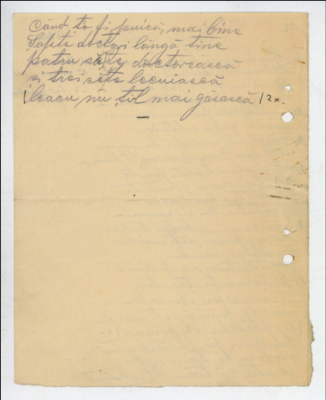 Când te fi puică, mai bine
Șapte doctori lângă tine
patru să te doctorească
și trei să te lecuiască
leacu nu țîl mai găsească /2x.